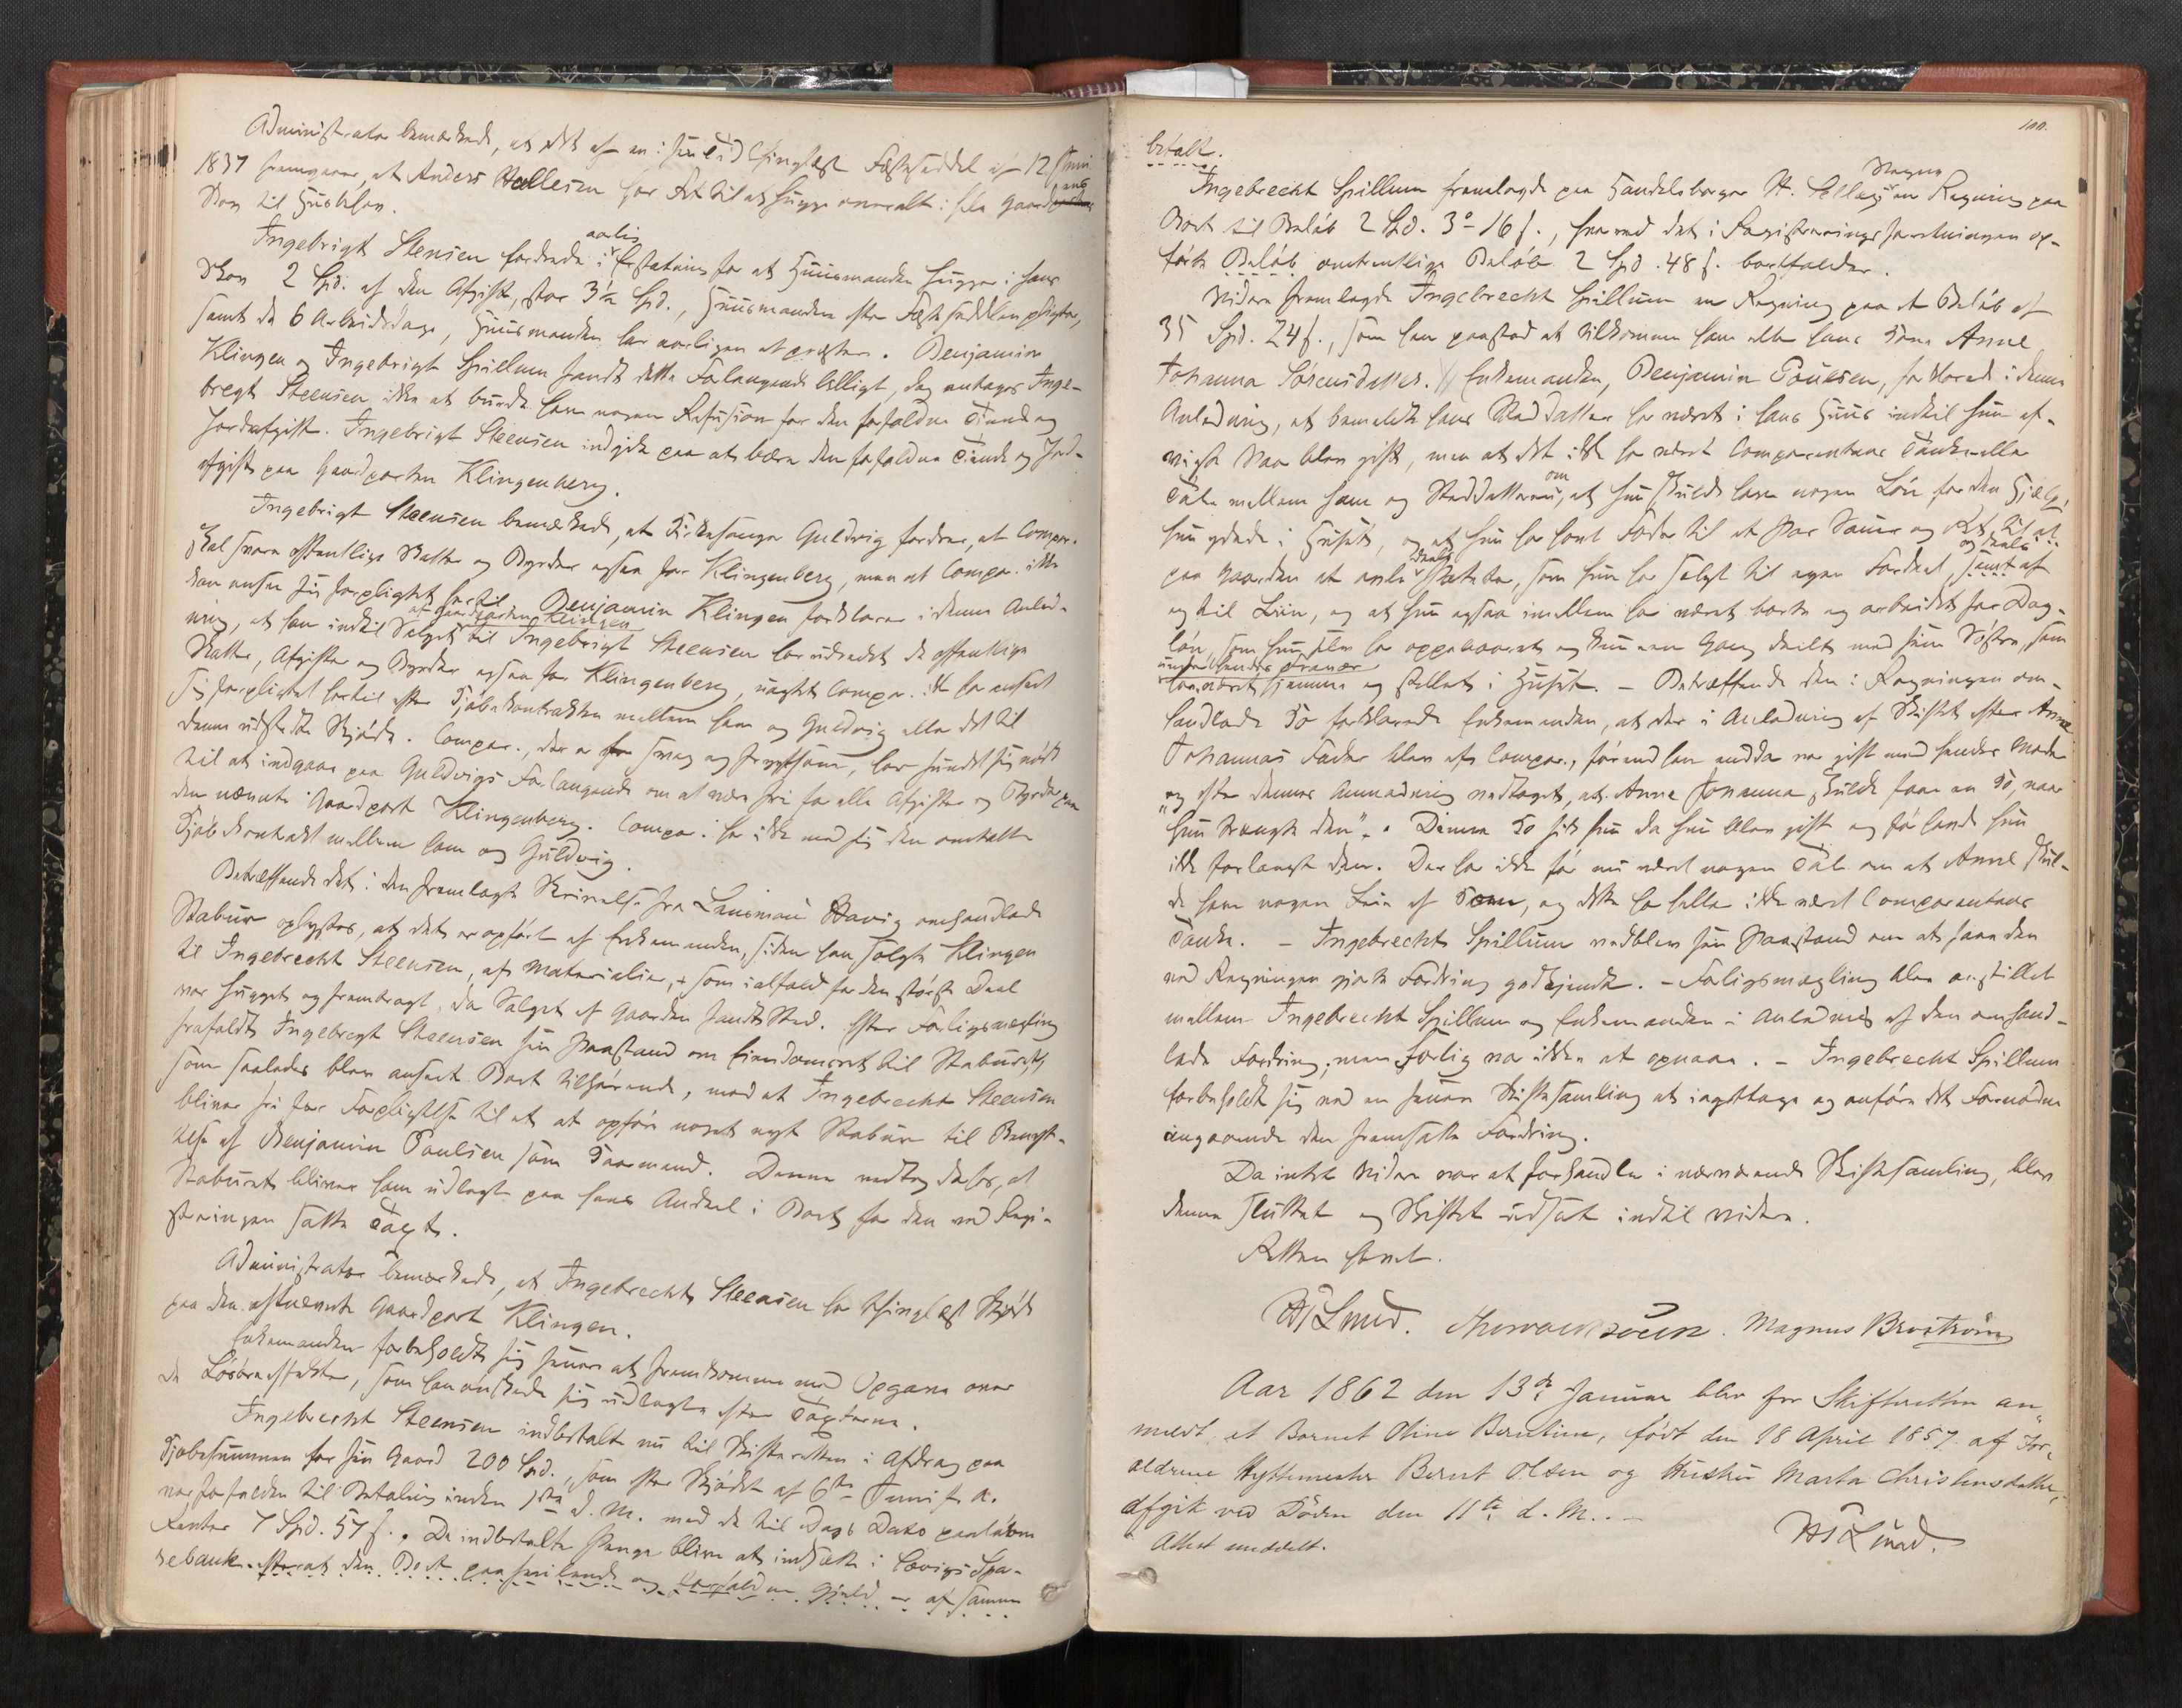 Administrator bemærkede, at det af en i sin Tid thinglæst Fæsteseddel af 12 Juni
1837 fremgaar, at Anders Hallesen har Ret til at hugge overalt i sin Gaards
Skov til Huusbehov.
Ingebrigt Steensen fordrede i aarlig Erstatning for at Huusmanden hugger i hans
Skov 2 Spd. af den Afgift, stor 3½ Spd., Huusmanden efter Fæsteseddelen pligter,
samt de 6 Arbeidsdage, Huusmanden har aarligen at præstere. Benjamin
Klingen og Ingebrigt Spillum fandt dette Forlangende billigt, dog antages Inge-
bregt Steensen ikke at burde have nogen Refusion for den forfaldne Tiende og
Jordafgift. Ingebrigt Steensen indgik paa at bære den forfaldne Tiende og Jord-
afgift paa Gaardparten Klingenberg.
Ingebrigt Steensen bemærkede, at Kirkesanger Guldvig fordrer, at Compar.
skal svare offentlige Skatter og Byrder ogsaa for Klingenberg, men at Compar. ikke
kan anse sig forpligtet hertil. Benjamin Klingen forklarer i denne Anled-
ning, at han indtil Salget af Gaardparten Klingen til Ingebrigt Steensen har udredet de offentlige
Skatter, Afgifter og Byrder ogsaa for Klingenberg, uagtet Compar. ikke har anseet
sig forpligtet hertil efter Kjøbekontrakten mellem ham og Guldvig eller det til
denne udstedte Skjøde. Compar., der er svag og frygtsom, har fundet sig nødt
til at indgaae paa Guldvigs Forlangende om at være fri for alle Afgifter og Byrder paa
den nævnte Gaardpart Klingenberg. Compar. har ikke med sig den omtalte
Kjøbekontrakt mellem ham og Guldvig.
Betræffende det i den fremlagte Skrivelse fra Lensmand Havig omhandlede
Stabur oplystes, at det er opført af Enkemanden, siden han solgte Klingen
til Ingebrecht Steensen, af Materialier, som ialfald for den største Deel
var hugget og frembragt, da Salget af Gaarden fandt Sted. Efter Forligsmægling
frafaldt Ingebregt Steensen sin Paastand om Eiendomsret til Staburet,
som saaledes blev anseet Boet tilhørende, mod at Ingebrecht Steensen
bliver fri for Forpligtelse til at opføre noget nyt Stabur til Benyt-
telse af Benjamin Paulsen som Kaarmand. Denne vedtog derfor, at
Staburet bliver ham udlagt paa hans Andeel i Boet for den ved Regi-
streringen satte Taxt.
Administrator bemærkede, at Ingebrecht Steensen har thinglæst Skjøde
paa den omhandlede Gaardpart Klingen.
Enkemanden forbeholdt sig senere at fremkomme med Opgave over
de Løsøreeffekter, som han ønskede sig udlagte efter Taxterne.
Ingebrecht Steensen indbetalte nu til Skifteretten i Afdrag paa
Kjøbesummen for sin Gaard 200 Spd., som efter Skjødet af 6te Juni f. A.
var forfalden til Betaling inden 1ste d. M. med de til Dags Dato paaløbne
Renter 7 Spd. 57 s. De indbetalte Penge bliver at indsætte i Sparebanken
efterat den Boet paahvilende og forfaldne Gjeld er af samme
100.
betalt.
Ingebrecht Spillum fremlagde paa Handelsborger A. Ellings Vegne en Regning paa
Boet til Beløb 2 Spd. 3 - 16 s., hvorved det i Registreringsforretningen op-
førte Beløb omtrentlige Beløb 2 Spd. 48 s. bortfalder.
Videre fremlagde Ingebrecht Spillum en Regning paa et Beløb af
35 Spd. 24 s., som han paastod at tilkomme ham eller hans Kone Anne
Johanna Sørensdatter. // Enkemanden, Benjamin Paulsen, forklarede i denne
Anledning, at bemeldte hans Steddatter har været i hans Huus indtil hun af-
vigte Vaar blev gift, men at det ikke har været Comparentens Tanke eller
Tale mellem ham og Steddatteren om, at hun skulde have nogen Løn for den Hjælp,
hun ydede i Huset, og at hun har havt Foder til et Par Sauer og Ret til at
paa Gaarden at avle deels Poteter, som hun har solgt til egen Fordeel, og deels samt af
og til Liin, og at hun ogsaa imellem har været borte og arbeidet for Dag-
løn, som hun selv har oppebaaret og kun een Gang deelt med sin Søster, som
har været hjemme og stellet i Huset. — Betræffende den i Regningen om-
handlede Ko forklarede Enkemanden, at der i Anledning af Skiftet efter Anne
Johannas Fader blev af Compar., førend han endda var gift med hendes Moder
"og efter dennes Anmodning vedtaget, at Anne Johanna skulde faae en Ko, naar
hun trængte den". Denne Ko fik hun da hun blev gift og før havde hun
ikke forlangt den. Der har ikke før nu været nogen Tale om at Anne skul-
de have nogen Leie af Koen, og dette har heller ikke været Comparentens
Tanke. — Ingebrecht Spillum vedblev sin Paastand om at faae den
ved Regningen gjorte Fordring godkjendt. — Forligsmægling blev anstillet
mellem Ingebrecht Spillum og Enkemanden i Anledning af den omhand-
lede Fordring, men Forlig var ikke at opnaae. — Ingebrecht Spillum
forbeholdt sig ved en senere Skiftesamling at iagttage og anføre det Fornødne
angaaende den fremsatte Fordring.
Da intet videre var at forhandle i nærværende Skiftesamling, blev
denne sluttet og Skiftet udsat indtil videre.
Retten hævet.
Lund. Magnus Broström
Aar 1862 den 13de Januar blev for Skifteretten an-
meldt, at Barnet Oline Berntine, født den 18 April 1857 af For-
ældrene Hyttemester Bernt Olsen og Hustru Marta Christensdatter,
afgik ved Døden den 11te d. M. —
Attest meddelt.
Lund.